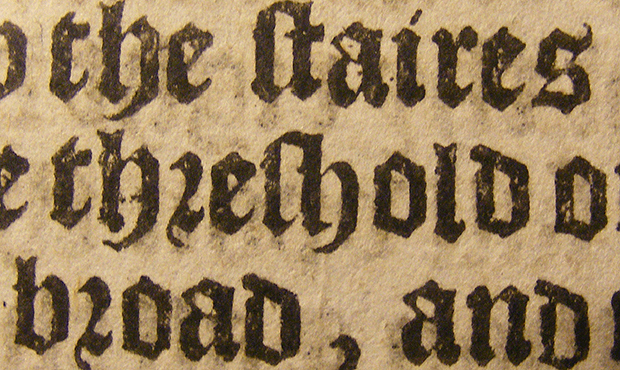 the ſtaires
e thꝛeſhold o
bꝛoad, and